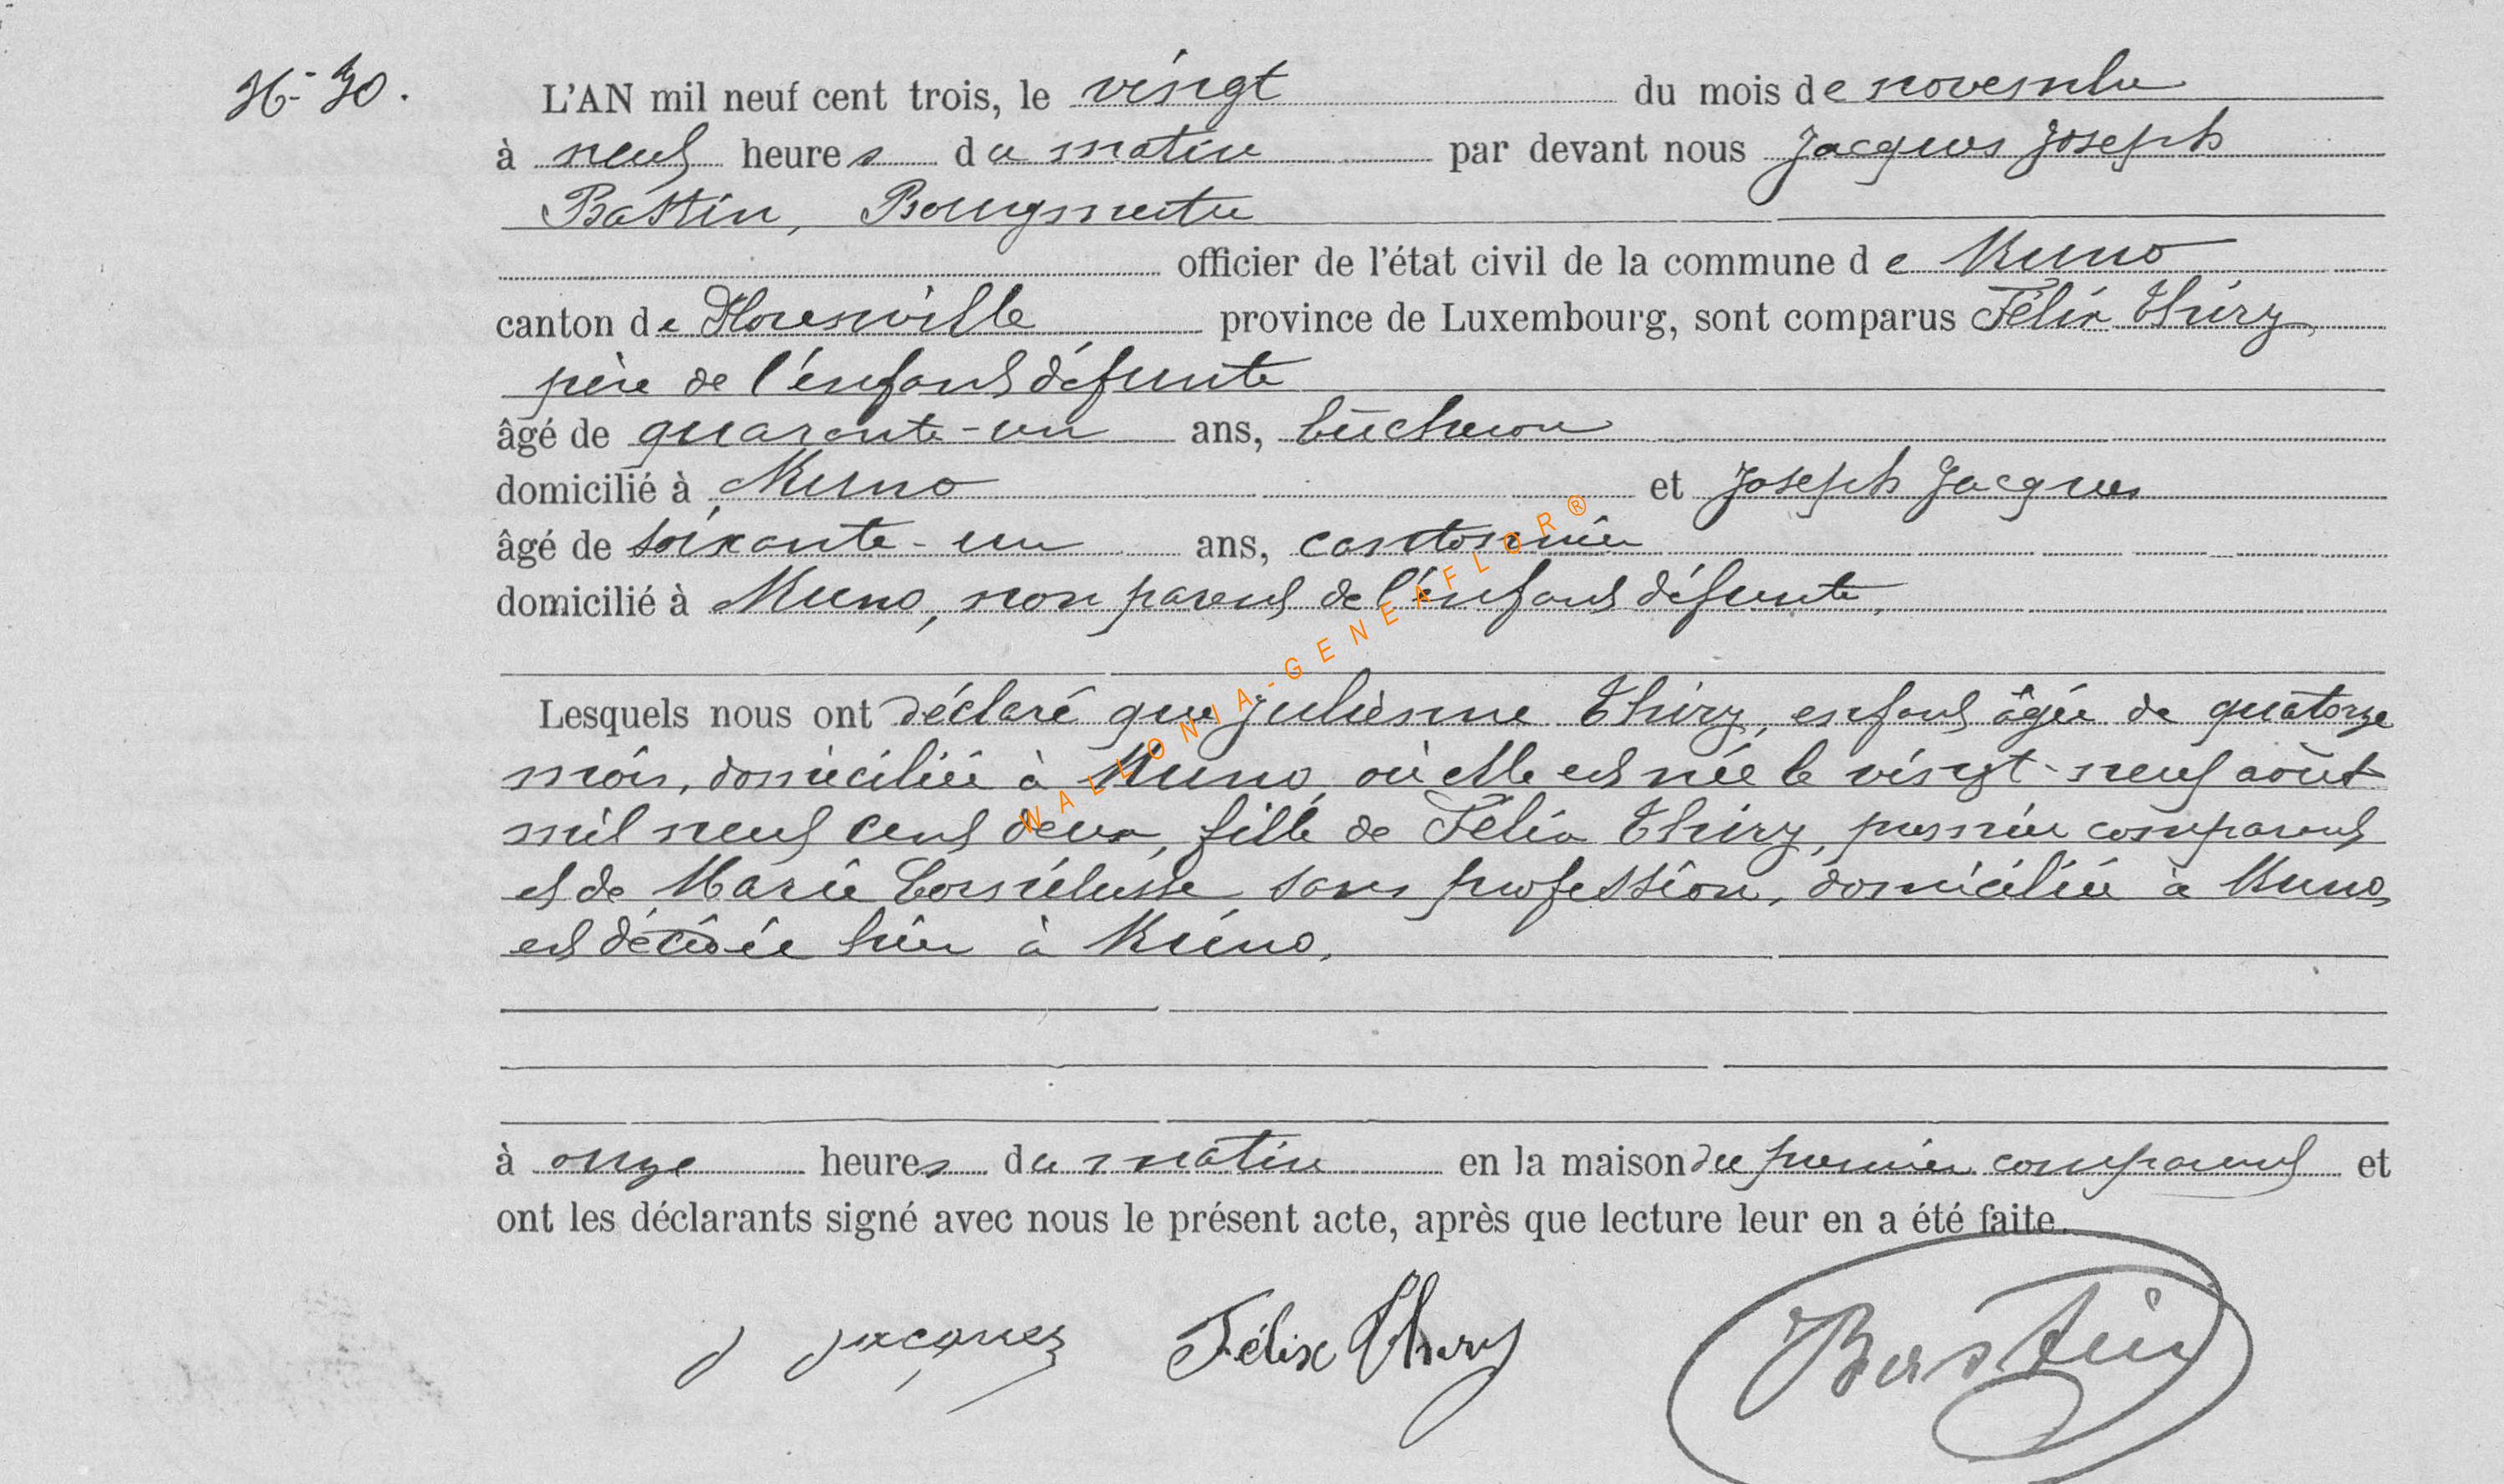 N° 30.
L'AN mil neuf cent trois, le vingt du mois de novembre
à neuf heures du matin par devant nous Jacques Joseph
Bastin, Bourgmestre
officier de l'état civil de la commune de Muno
canton de Florenville province de Luxembourg, sont comparus Félix Thiry,
père de l'enfant défunte
âgé de quarante-un ans, bûcheron
domicilié à Muno et Joseph Jacques
âgé de soixante-un ans, cantonnier
domicilié à Muno, non parent de l'enfant défunte,
Lesquels nous ont déclaré que Julienne Thiry, enfant âgée de quatorze
mois, domiciliée à Muno, où elle est née le vingt-neuf août
mil neuf cent deux, fille de Félix Thiry, premier comparant
et de Marie Cornélusse sans profession, domiciliée à Muno,
est décédée hier à Muno,
à onze heures du matin en la maison du premier comparant et
ont les déclarants signé avec nous le présent acte, après que lecture leur en a été faite.
J Jacques Félix Thiry Bastin
WALLONIA-GENEAFLOR®